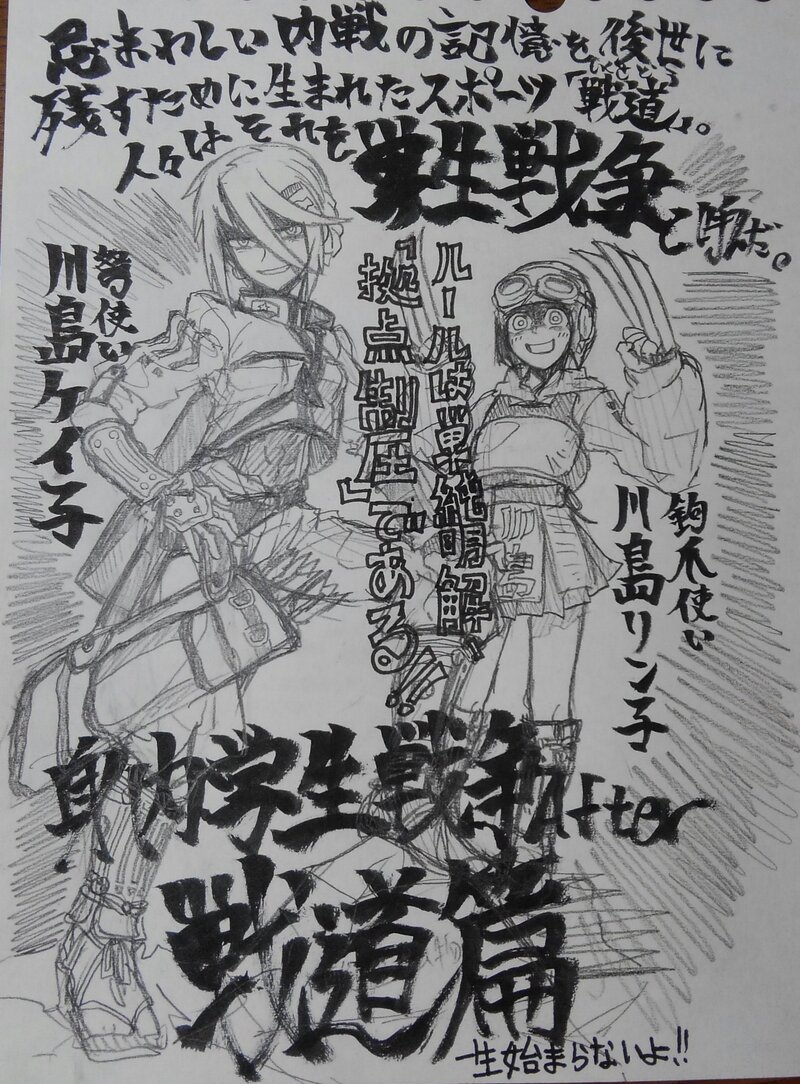 忌まわしい内戦の記憶を後世に
残すために生まれたスポーツ「戦道」。
いくさどう
人々はそれを学生戦争と呼んだ。
ルールは単純明解、
「拠点制圧」である!!
弩使い
川島ケイ子
鉤爪使い
川島リン子
学生戦争After
戦道篇
一生始まらないよ!!